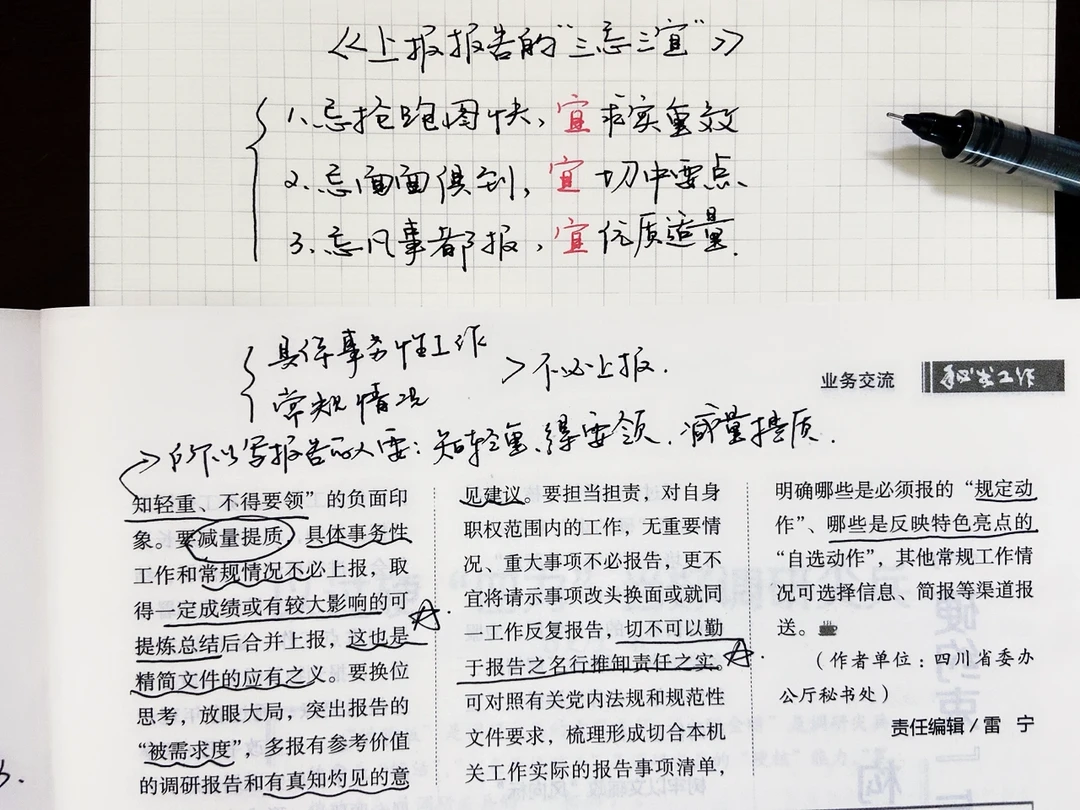 《上报报告的“三忌三宜”》
1.忌抢跑图快，宜求实重效
2.忌面面俱到，宜切中要点、
3.忌凡事都报，宜优质适量.
具体事务性工作
常规情况
>不必上报.
业务交流
秘书工作
→所以写报告的人要：知轻重、得要领、减量提质.
知轻重、不得要领”的负面印
象。要减量提质，具体事务性
工作和常规情况不必上报，取
得一定成绩或有较大影响的可
提炼总结后合并上报，这也是
精简文件的应有之义。要换位
思考，放眼大局，突出报告的
“被需求度”，多报有参考价值
的调研报告和有真知灼见的意
见建议。要担当担责，对自身
职权范围内的工作，无重要情
况、重大事项不必报告，更不
宜将请示事项改头换面或就同
一工作反复报告，切不可以勤
于报告之名行推卸责任之实。
可对照有关党内法规和规范性
文件要求，梳理形成切合本机
关工作实际的报告事项清单，
明确哪些是必须报的“规定动
作”、哪些是反映特色亮点的
“自选动作”，其他常规工作情
况可选择信息、简报等渠道报
送。
（作者单位：四川省委办
公厅秘书处）
责任编辑/雷 宁